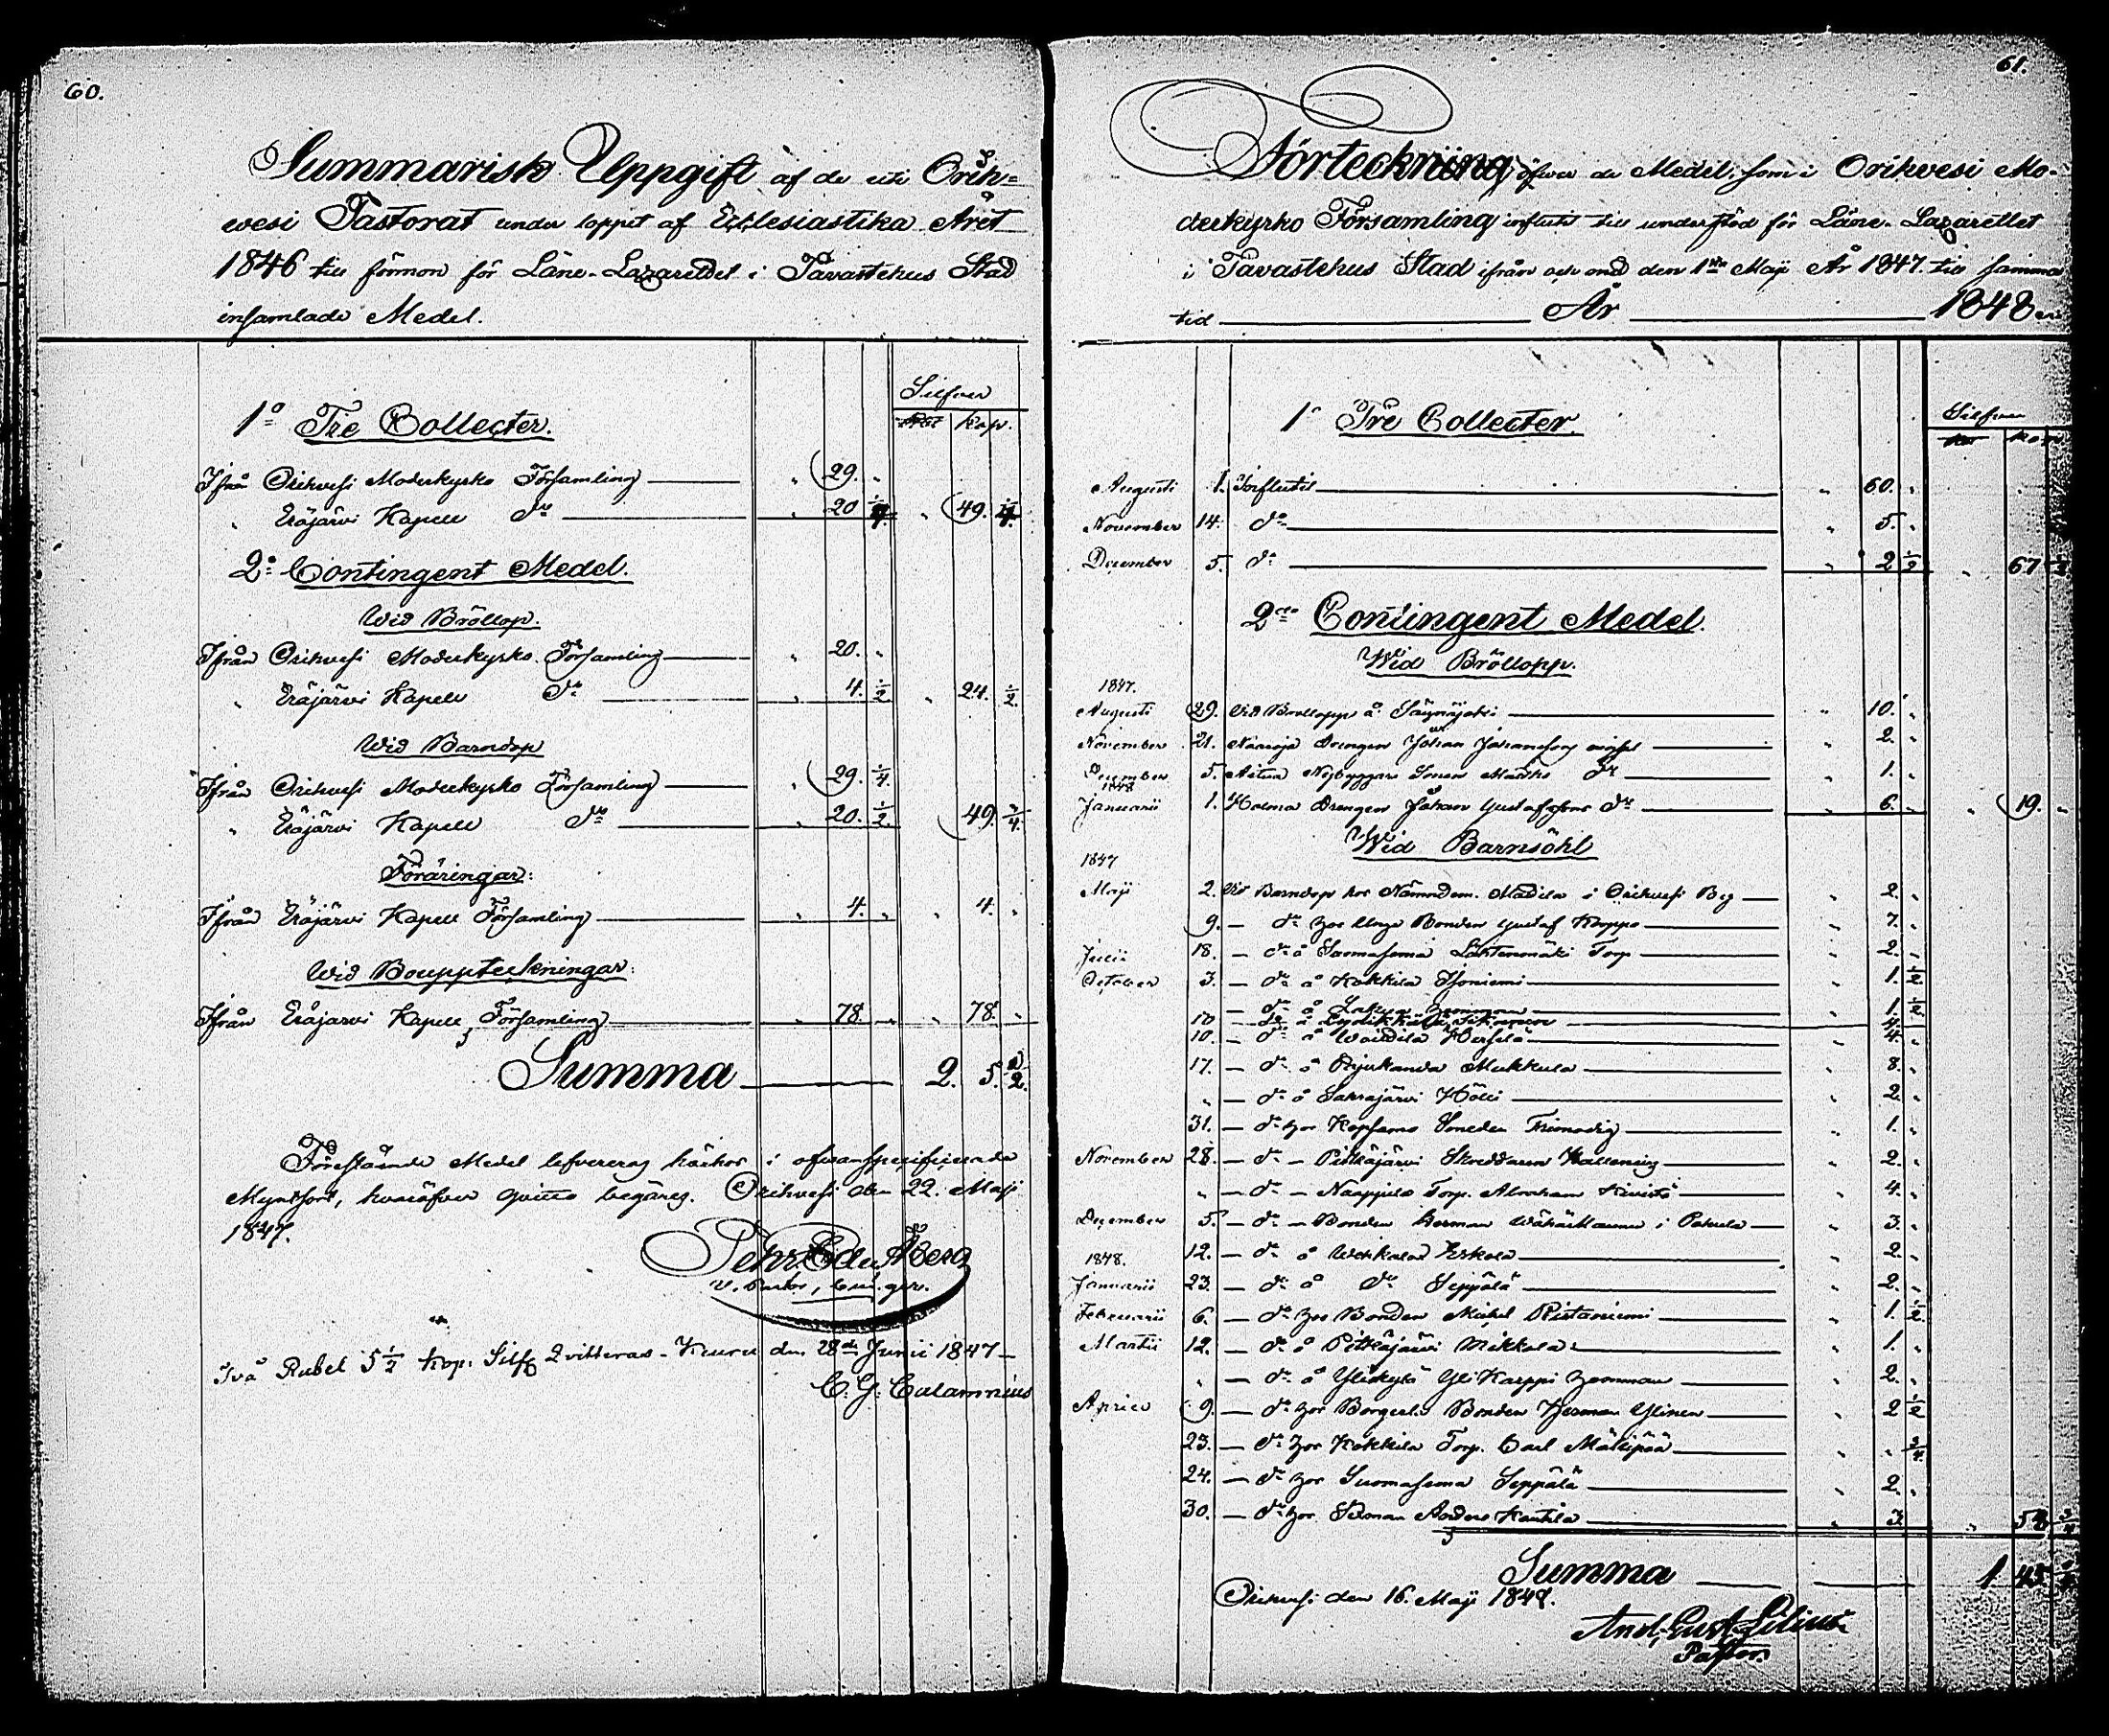 60.
Summarisk Uppgift af de uti Orih=
wesi Pastorat under loppet af Ecclesiastika Året
1846 till förmon för Läne-Lazarettet i Tavastehus Stad
insamlade Medel.
Silfver
Kop.
1o Tre Collecter.
Ifrån Orihvesi Moderkyrko Församling " 29. "
" Eräjärvi Kapell do " 20 1/4 " 49. 1/4.
2o Contingent Medel.
Wid Bröllop.
Ifrån Orihvesi Moderkyrko Församling " 20. "
" Eräjärvi Kapell do 4. 1/2 " 24. 1/2.
Wid Barndop
Ifrån Orihvesi Moderkyrko Församling " 29. 1/4.
" Eräjärvi Kapell do " 20. 1/2. 49. 3/4.
Föräringar:
Ifrån Eräjärvi Kapell Församling " 4. " " 4. "
Wid Bouppteckningar:
Ifrån Eräjärvi Kapell Församling " 78. " " 78. "
Summa 2. 5. 1/2.
Förestående Medel lefvereras härhos i ofvanspecificerade
Myntsort, hvaröfver qvitto begäres. Orihvesi den 22. Maji
1847.
Pehr Edv. Åberg
v. Pastor,
Två Rubel 5 1/2 kop. Silf. Qvitteras - Keuru den 28de Junii 1847 -
C. G. Calamnius
61.
Förteckning öfver de Medel, som i Orihvesi Mo-
derkyrko Församling influtit till understöd för Läne-Lazarettet
i Tavastehus Stad ifrån och med den 1sta Maji År 1847. till samma
tid År 1848.
Silfver
Kop.
1o Tre Collecter.
Augusti 1. Influtit " 60. "
November 14. do " 5. "
December 5. do " 2 1/2 " 67 1/2
2do Contingent Medel.
Wid Bröllopp.
1847.
Augusti 29. Vid Bröllopp å Säynäjoki " 10. "
November 21. Drengen Johan Johansson " 2. "
December 5. Nybyggare Sonen do " 1. "
1848.
Januarii 1. Holma Drengen Johan Gustafsson do " 6. " " 19. "
Wid Barnsöhl
1847
Maji 2. Vid Barndop hos Nämndem. Madila i Orihvesi By " 2. "
9. — do hos Bonden Gustaf " 7. "
Julii 18. — do å Suomasema Lähtenmäki Torp " 2. "
October 3. — do å Kokkila Isoniemi " 1. 1/2
— do å 1. 1/2
10 — 4.
10. — do å " 4. "
17. — do å Mukkula " 8. "
" — do å Sahrajärvi Hölli " 2. "
31. — do hos Smeden Frimodig " 1. "
November 28. — do — Pitkäjärvi Skreddaren " 2. "
" — do — Torp. Abraham " 4. "
December 5. — do — Bonden Herman i " 3. "
1848. 12. — do å Eskola " 2. "
Januarii 23. — do å do Seppälä " 2. "
Februarii 6. — do hos Bonden Michel Ristaniemi " 1. 1/2.
Martii 12. — do å Pitkäjärvi Mikkola " 1. "
" — do å Yliskylä Yli Karppi " 2. "
Aprill 9. — do hos Bonden Herman Ylinen " 2 1/2
23. — do hos Kokkila Torp. Carl Mäkipää " " 3/4.
24. — do hos Suomasema Seppälä " 2. "
30. — do hos Anders " 3. " 58 3/4
Summa 1 45 1/4
Orihvesi den 16. Maji 1848.
And. Gust. Lilius
Pastor.